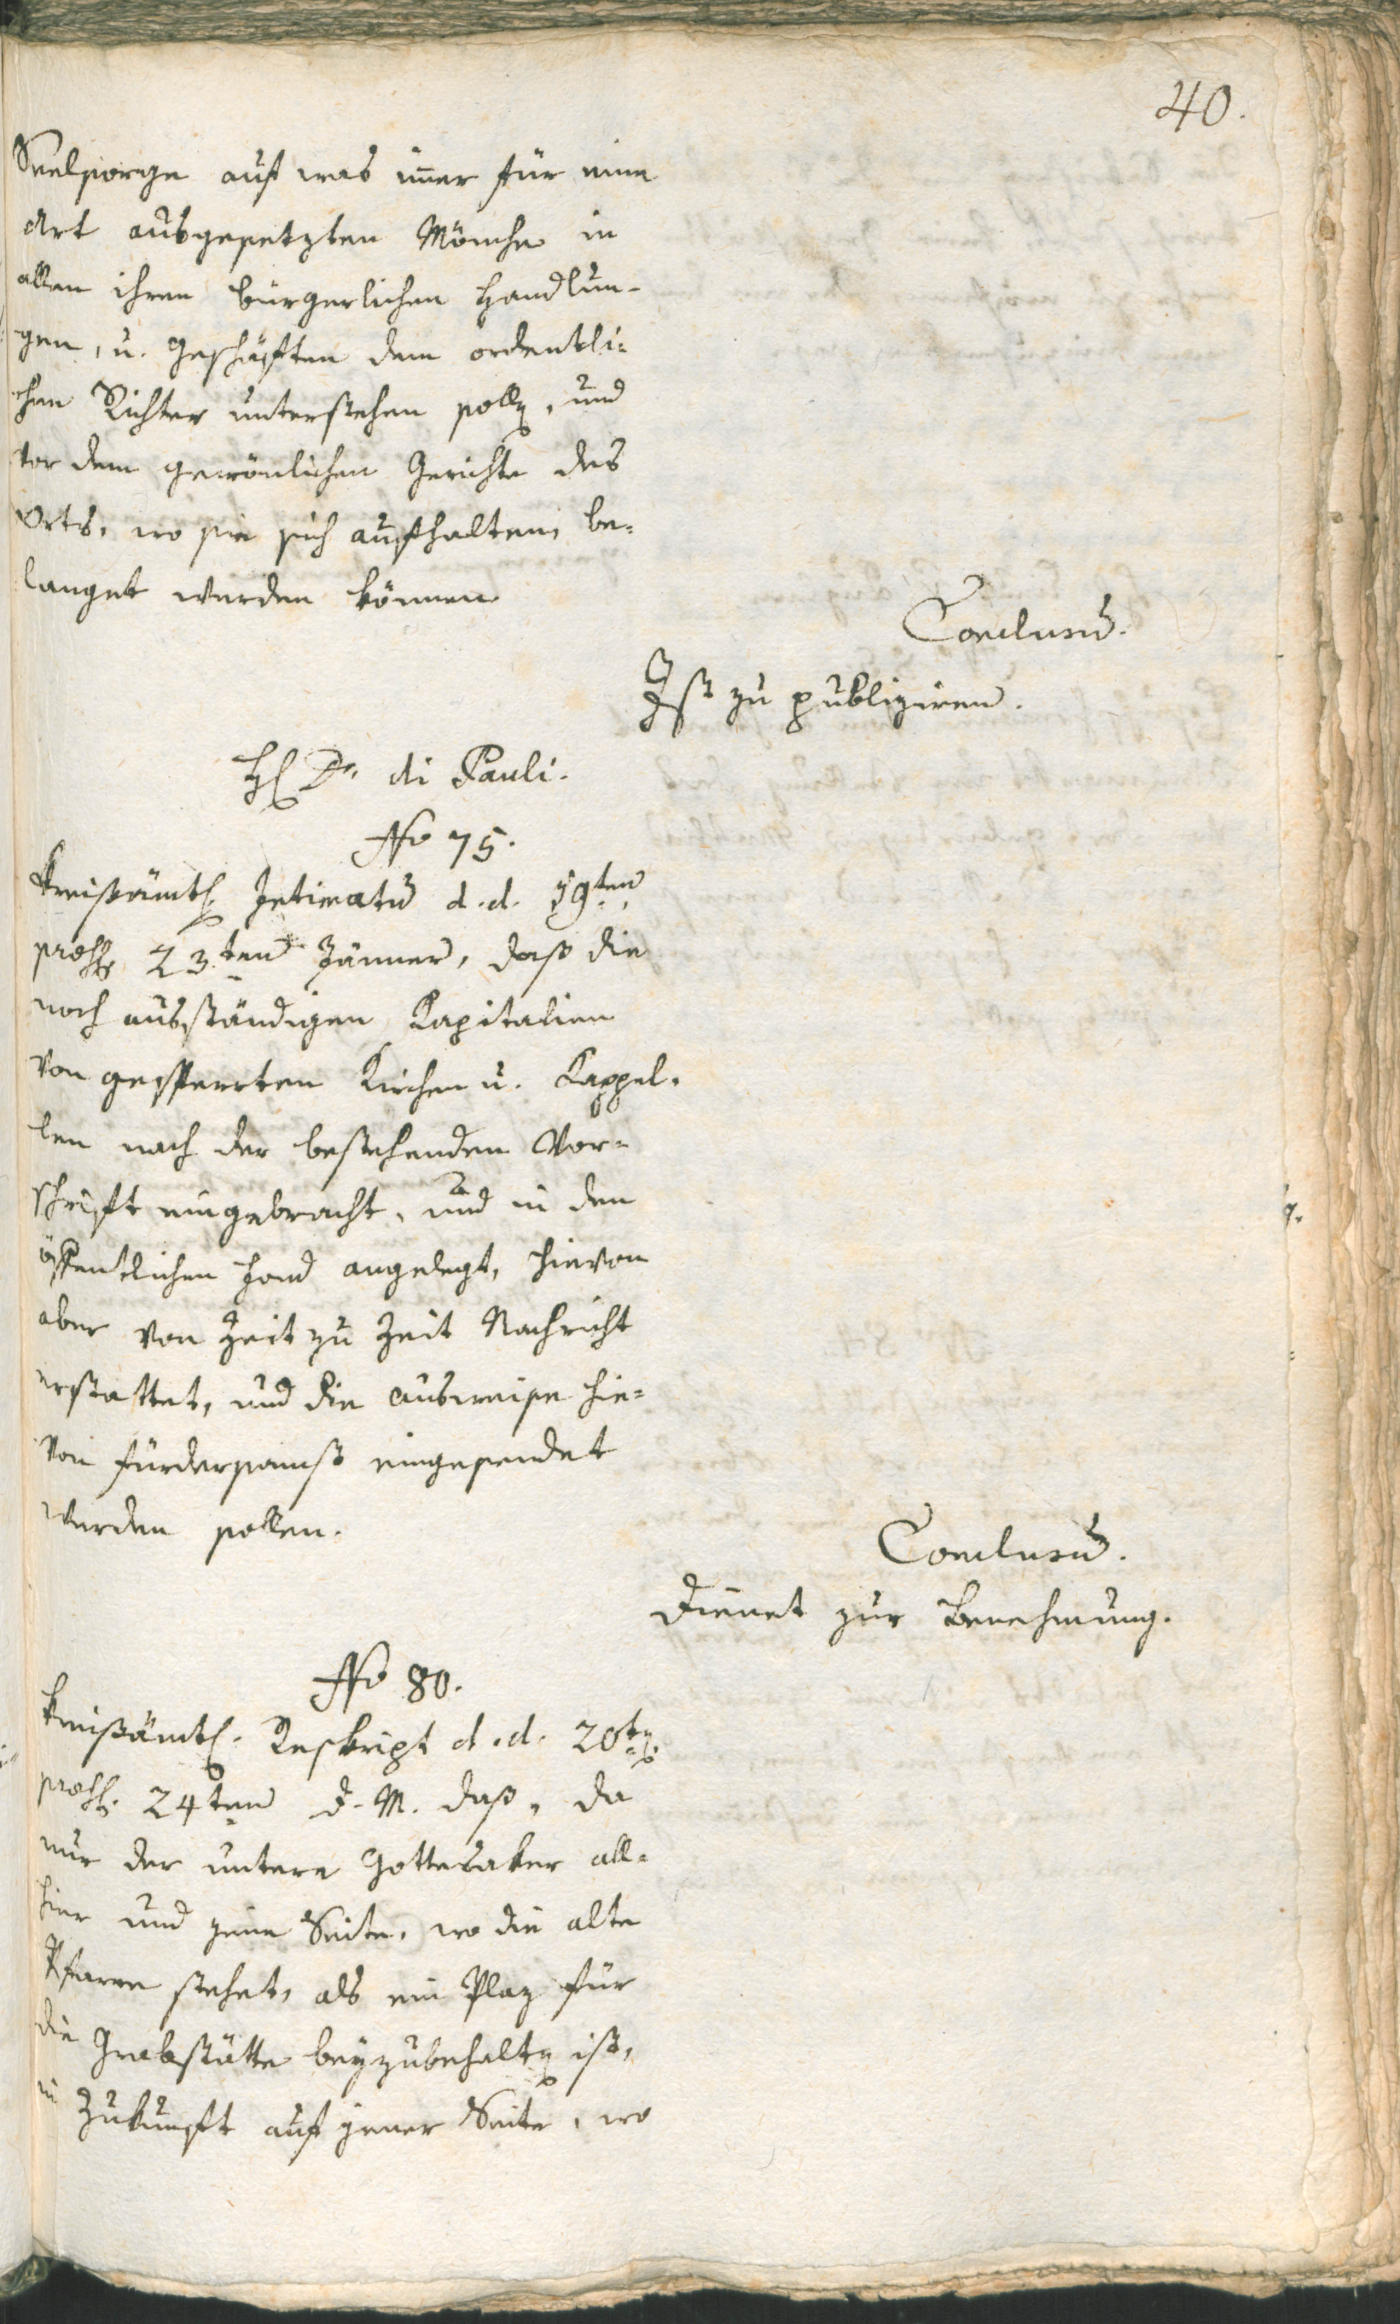 40.
Seelsorge auf was im̄er für eine
Art ausgesetzten Mönche in
allen ihren bürgerlichen Handlun-
gen, u. Geschäften dem ordentli-
chen Richter unterstehen solle, und
vor dem gewönlichen Gerichte des
Orts, wo sie sich aufhalten, be-
langet werden können
Conclusū.
Ist zu publiziren.
H. Dr. di Pauli.
No 75.
Kreißämtl. Intimatū d. d. 19ten
præs. 23.ten Jänner, daß die
noch ausständigen Kapitalien
von gesperrten Kirchen u. Kappel-
len nach der bestehenden Vor-
schrift eingebracht, und in den
öffentlichen Fond angelegt, hievon
aber von Zeit zu Zeit Nachricht
erstattet, und die Ausweise hie-
von fürdersamst eingesendet
werden sollen.
Conclusū.
Dienet zur Benehmung.
No 80.
Kreißämtl. Reskript d. d. 20ten
præs. 24ten d. M. daß, da
nur der untere Gottesaker all-
hier und jene Seite, wo die alte
Pfarre stehet, als ein Plaz für
die Grabstätte beyzubehalten ist,
in Zukunft auf jener Seite, wo